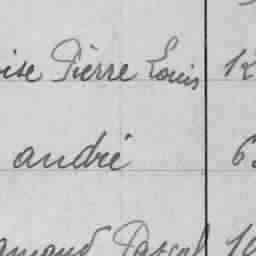 oise Pierre Louis 12
andré 6
Pascal 10